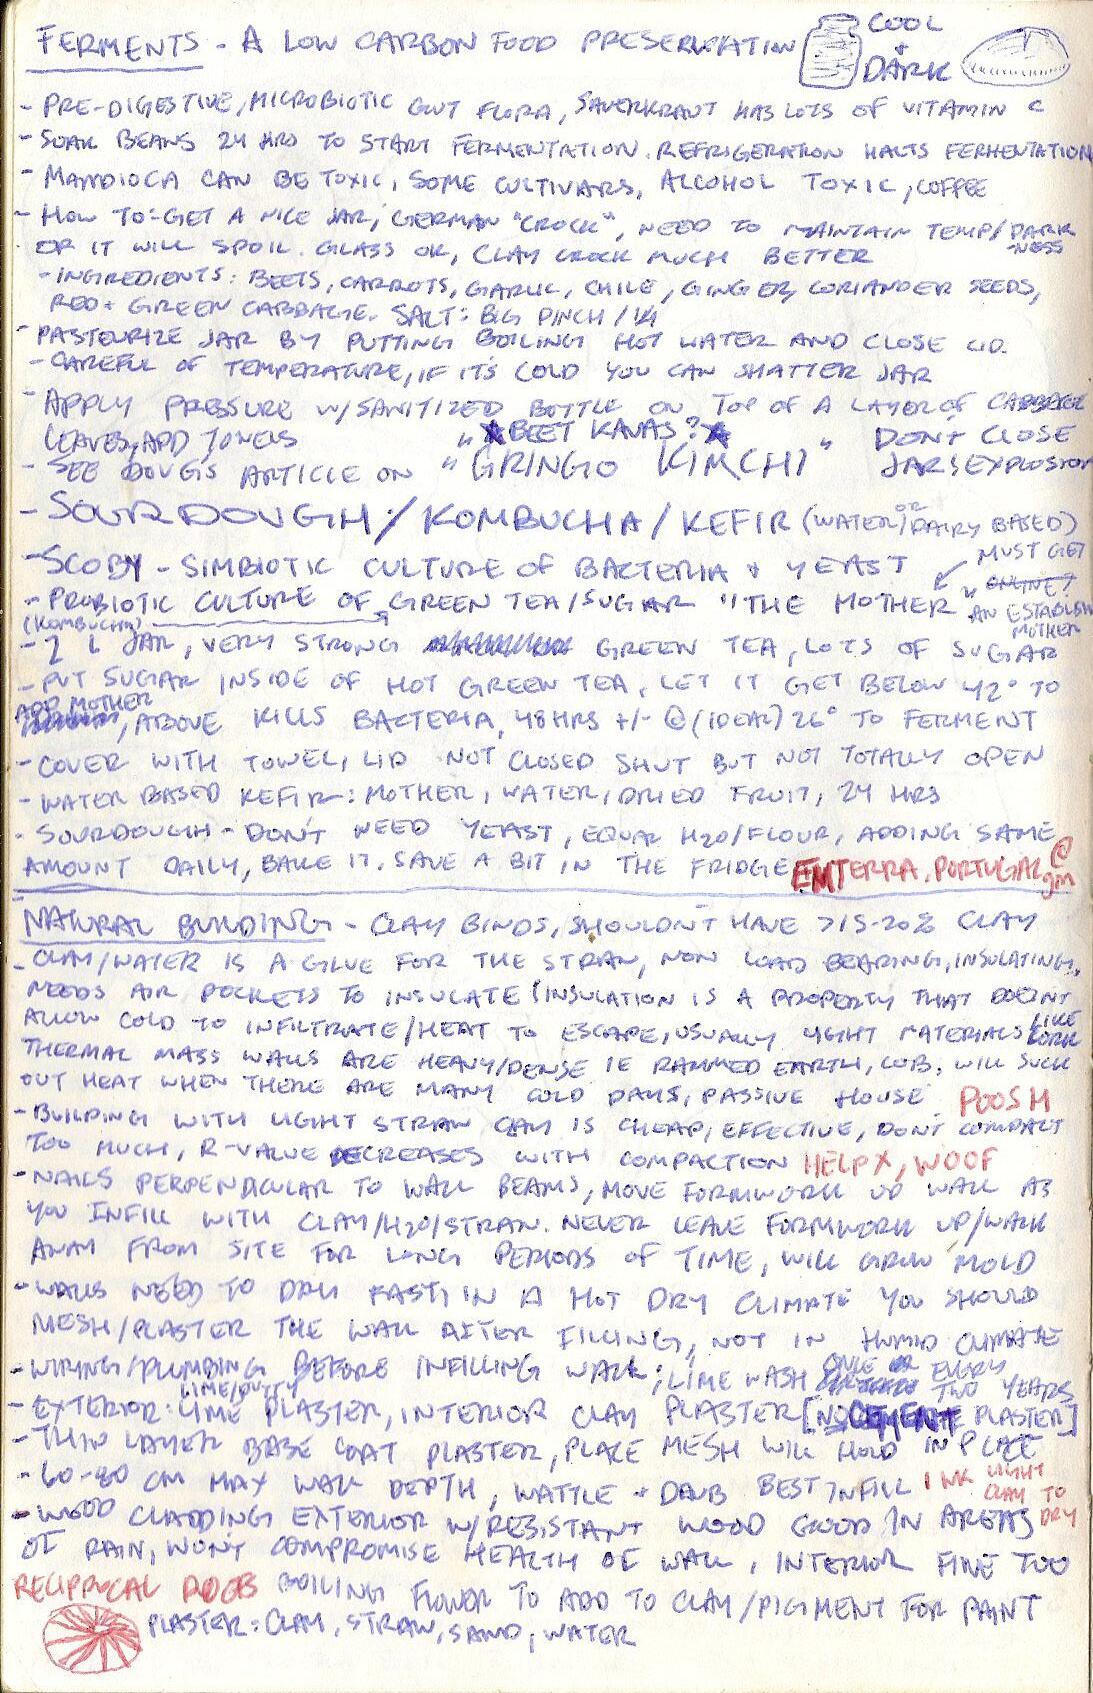 FERMENTS - A LOW CARBON FOOD PRESERVATION
COOL + DARK
- PRE-DIGESTIVE, MICROBIOTIC GUT FLORA, SAUERKRAUT HAS LOTS OF VITAMIN C
- SOAK BEANS 24 HRS TO START FERMENTATION. REFRIGERATION HALTS FERMENTATION
- MANDIOCA CAN BE TOXIC, SOME CULTIVARS, ALCOHOL TOXIC, COFFEE
- HOW TO: GET A NICE JAR, GERMAN "CROCK", NEED TO MAINTAIN TEMP/DARK-NESS
OR IT WILL SPOIL. GLASS OK, CLAY CROCK MUCH BETTER
- INGREDIENTS: BEETS, CARROTS, GARLIC, CHILE, GINGER, CORIANDER SEEDS,
RED + GREEN CABBAGE. SALT: BIG PINCH /
- PASTEURIZE JAR BY PUTTING BOILING HOT WATER AND CLOSE LID.
- CAREFUL OF TEMPERATURE, IF IT'S COLD YOU CAN SHATTER JAR
- APPLY PRESSURE W/SANITIZED BOTTLE ON TOP OF A LAYER OF CABBAGE
LEAVES, ADD TOWELS " BEET KANAS? " DON'T CLOSE
- SEE DOUG'S ARTICLE ON "GRINGO KIMCHI" JARS! EXPLOSION
- SOURDOUGH/KOMBUCHA/KEFIR (WATER) OR DAIRY BASED)
- SCOBY - SIMBIOTIC CULTURE OF BACTERIA + YEAST
MUST GET
ONLINE?
AN ESTABLISH
MOTHER
- PROBIOTIC CULTURE OF GREEN TEA/SUGAR "THE MOTHER"
(KOMBUCHA)
- 2 L JAR, VERY STRONG GREEN TEA, LOTS OF SUGAR
- PUT SUGAR INSIDE OF HOT GREEN TEA, LET IT GET BELOW 42° TO
ADD MOTHER, ABOVE KILLS BACTERIA, 48 HRS +/- @ (IDEAL) 26° TO FERMENT
- COVER WITH TOWEL, LID NOT CLOSED SHUT BUT NOT TOTALLY OPEN
- WATER BASED KEFIR: MOTHER, WATER, DRIED FRUIT, 24 HRS
- SOURDOUGH - DON'T NEED YEAST, EQUAL H2O/FLOUR, ADDING SAME
AMOUNT DAILY, BAKE IT. SAVE A BIT IN THE FRIDGE
EMTERRA.PORTUGAL@gm
NATURAL BUILDING - CLAY BINDS, SHOULDN'T HAVE >15-20% CLAY
- CLAY/WATER IS A GLUE FOR THE STRAW, NON LOAD BEARING, INSULATING,
NEEDS AIR POCKETS TO INSULATE (INSULATION IS A PROPERTY THAT DOESN'T
ALLOW COLD TO INFILTRATE/HEAT TO ESCAPE, USUALLY LIGHT MATERIALS LIKE CORK
THERMAL MASS WALLS ARE HEAVY/DENSE IE RAMMED EARTH, COB, WILL SUCK
OUT HEAT WHEN THERE ARE MANY COLD DAYS, PASSIVE HOUSE POOSH
- BUILDING WITH LIGHT STRAW CLAY IS CHEAP, EFFECTIVE, DON'T COMPACT
TOO MUCH, R-VALUE DECREASES WITH COMPACTION HELPX, WOOF
- NAILS PERPENDICULAR TO WALL BEAMS, MOVE FORMWORK UP WALL AS
YOU INFILL WITH CLAY/H2O/STRAW. NEVER LEAVE FORMWORK UP/WALK
AWAY FROM SITE FOR LONG PERIODS OF TIME, WILL GROW MOLD
- WALLS NEED TO DRY FAST, IN A HOT DRY CLIMATE YOU SHOULD
MESH/PLASTER THE WALL AFTER FILLING, NOT IN HUMID CLIMATE
- WIRING/PLUMBING BEFORE INFILLING WALL; LIME WASH ONCE EVERY TWO YEARS
- EXTERIOR: LIME/PUTTY LIME PLASTER, INTERIOR CLAY PLASTER [NO CEMENT PLASTER]
- THIN LAYER BASE COAT PLASTER, PLACE MESH WILL HOLD IN PLACE
- 60-80 CM MAX WALL DEPTH, WATTLE + DAUB BEST INFILL 1 WK LIGHT CLAY TO DRY
- WOOD CLADDING EXTERIOR W/RESISTANT WOOD GOOD IN AREAS
OF RAIN, WON'T COMPROMISE HEALTH OF WALL, INTERIOR FINE TOO
RECIPROCAL ROOFS BOILING FLOWER TO ADD TO CLAY/PIGMENT FOR PAINT
PLASTER: CLAY, STRAW, SAND, WATER